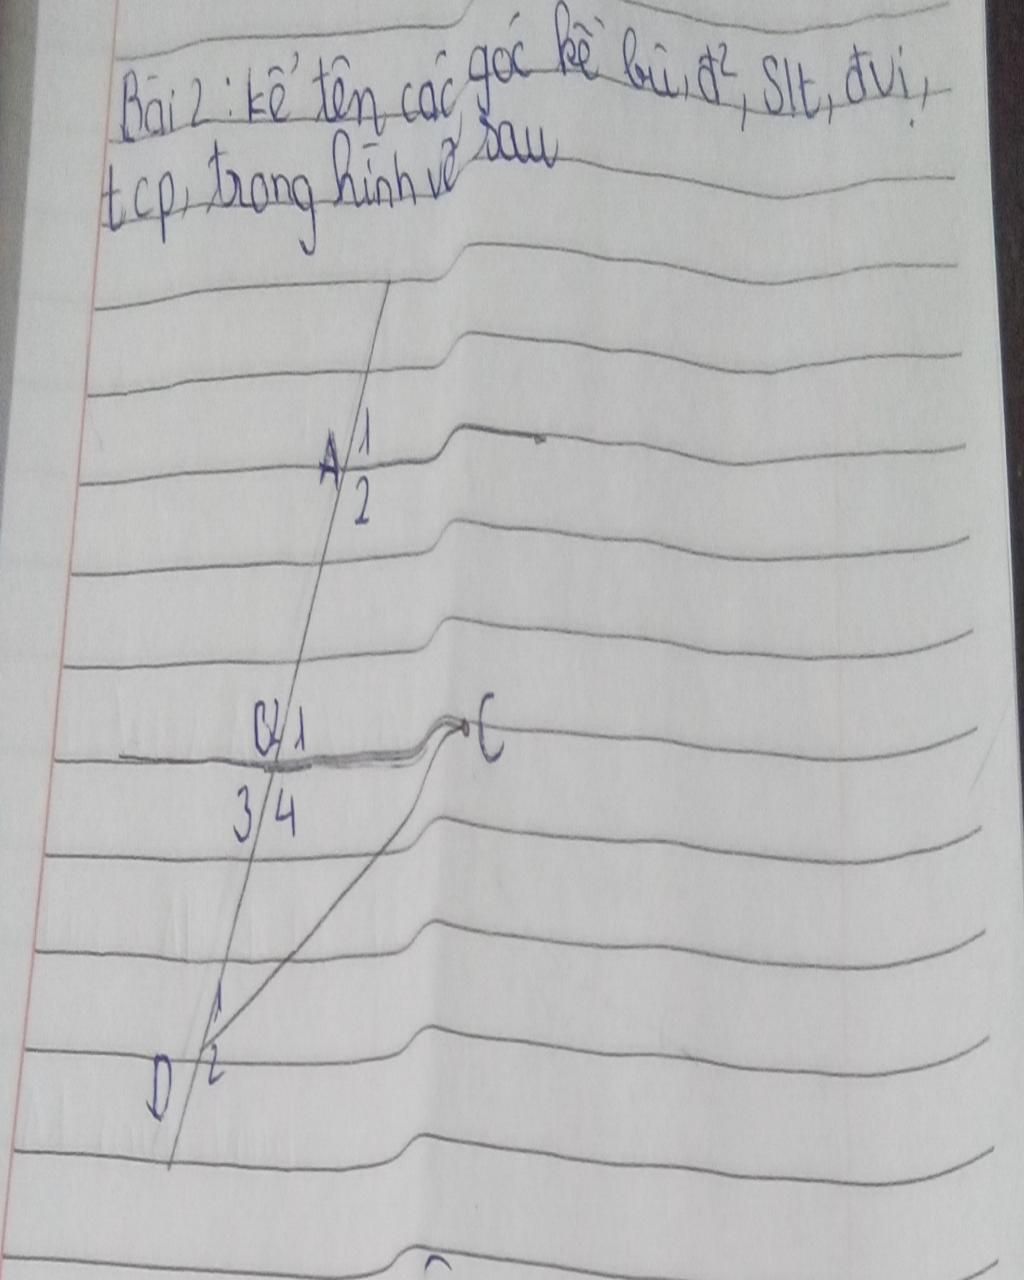 Bài 2: kể tên các góc kề bù, đ², Slt, đvị,
tcp, trong hình vẽ sau
1
A
2
2 1
C
3 4
1
D 2